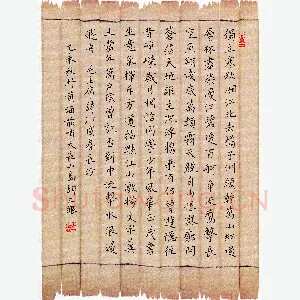 獨立寒秋湘江北去橘子洲頭看萬山紅遍
層林盡染漫江碧透百舸爭流鷹擊長
空魚翔淺底萬類霜天競自由悵寥廓問
蒼茫大地誰主沉浮攜來百侶曾遊憶往
昔崢嶸歲月稠恰同學少年風華正茂書
生意氣揮斥方遒指點江山激揚文字糞
土當年萬戶侯曾記否到中流擊水浪遏
飛舟 毛主席詩詞沁園春長沙
乙未秋竹